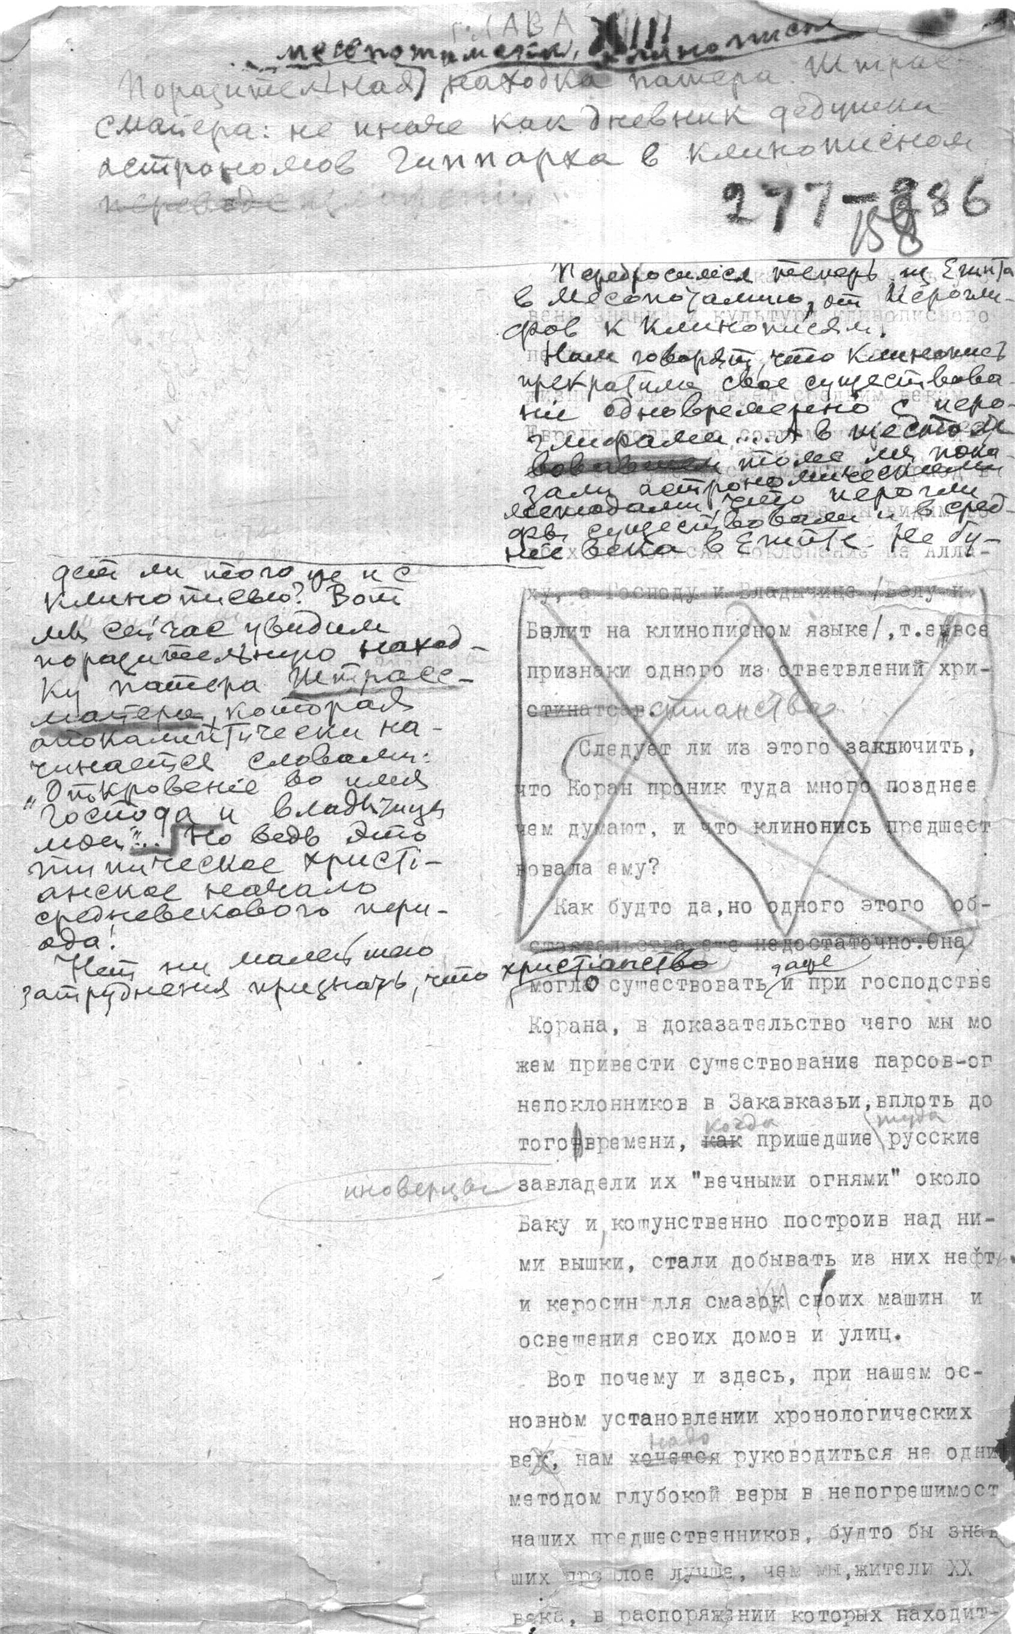 ГЛАВА XVIII
месопотамские клинописи
Поразительная находка патера Штрас-
смайера: не иначе как дневник дедушки
астрономов Гиппарха в клинописном
переводе
277-286
158
Перебросимся теперь из Египта
в Месопотамию, от иерогли-
фов к клинописям.
Нам говорят, что клинопись
прекратила свое существова-
ние одновременно с иеро-
глифами.... А в шестом
томе мы пока-
зали астрономическими
методами, что иерогли-
фы существовали и в сред-
ние века в Египте. Не бу-
дет ли того же и с
клинописью? Вот
мы сейчас увидим
поразительную наход-
ку патера Штрасс-
майера, которая
апокалиптически на-
чинается словами:
"Откровение во имя
Господа и владычицы
моей"... Но ведь это
типическое христі-
анское начало
средневекового пери-
ода!
Нет ни малейшего
затруднения признать, что христианство
ху, а Господу и Владычице /Белу и
Белит на клинописном языке/, т.е. все
признаки одного из ответвлений хри-
стинатсва. стианства
Следует ли из этого заключить,
что Коран проник туда много позднее
чем думают, и что клинопись предшест
вовала ему?
Как будто да, но одного этого об-
стоятельства еще недостаточно. Она
могло существовать и при господстве
Корана, в доказательство чего мы мо
жем привести существование парсов-ог
непоклонников в Закавказьи, вплоть до
того времени, как когда пришедшие туда русские
иноверцы завладели их "вечными огнями" около
Баку и, кощунственно построив над ни-
ми вышки, стали добывать из них нефть
и керосин для смазки своих машин и
освещения своих домов и улиц.
Вот почему и здесь, при нашем ос-
новном установлении хронологических
вех, нам хочется надо руководиться не одним
методом глубокой веры в непогрешимост
наших предшественников, будто бы знав
ших прошлое лучше, чем мы, жители XX
века, в распоряжении которых находит-